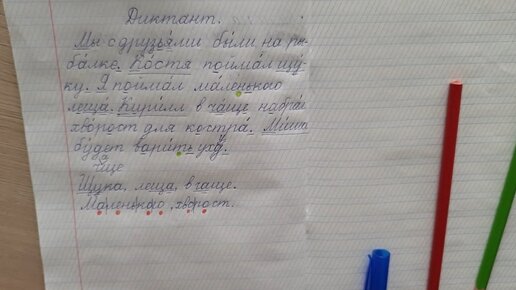 Диктант.
Мы с друзьями были на ры-
балке. Костя поймал щу-
ку. Я поймал маленького
леща. Кирилл в чаще набрал
хворост для костра. Миша
будет варить уху.
ща
чаще
Щука, леща, в чаще.
Маленького, хворост.